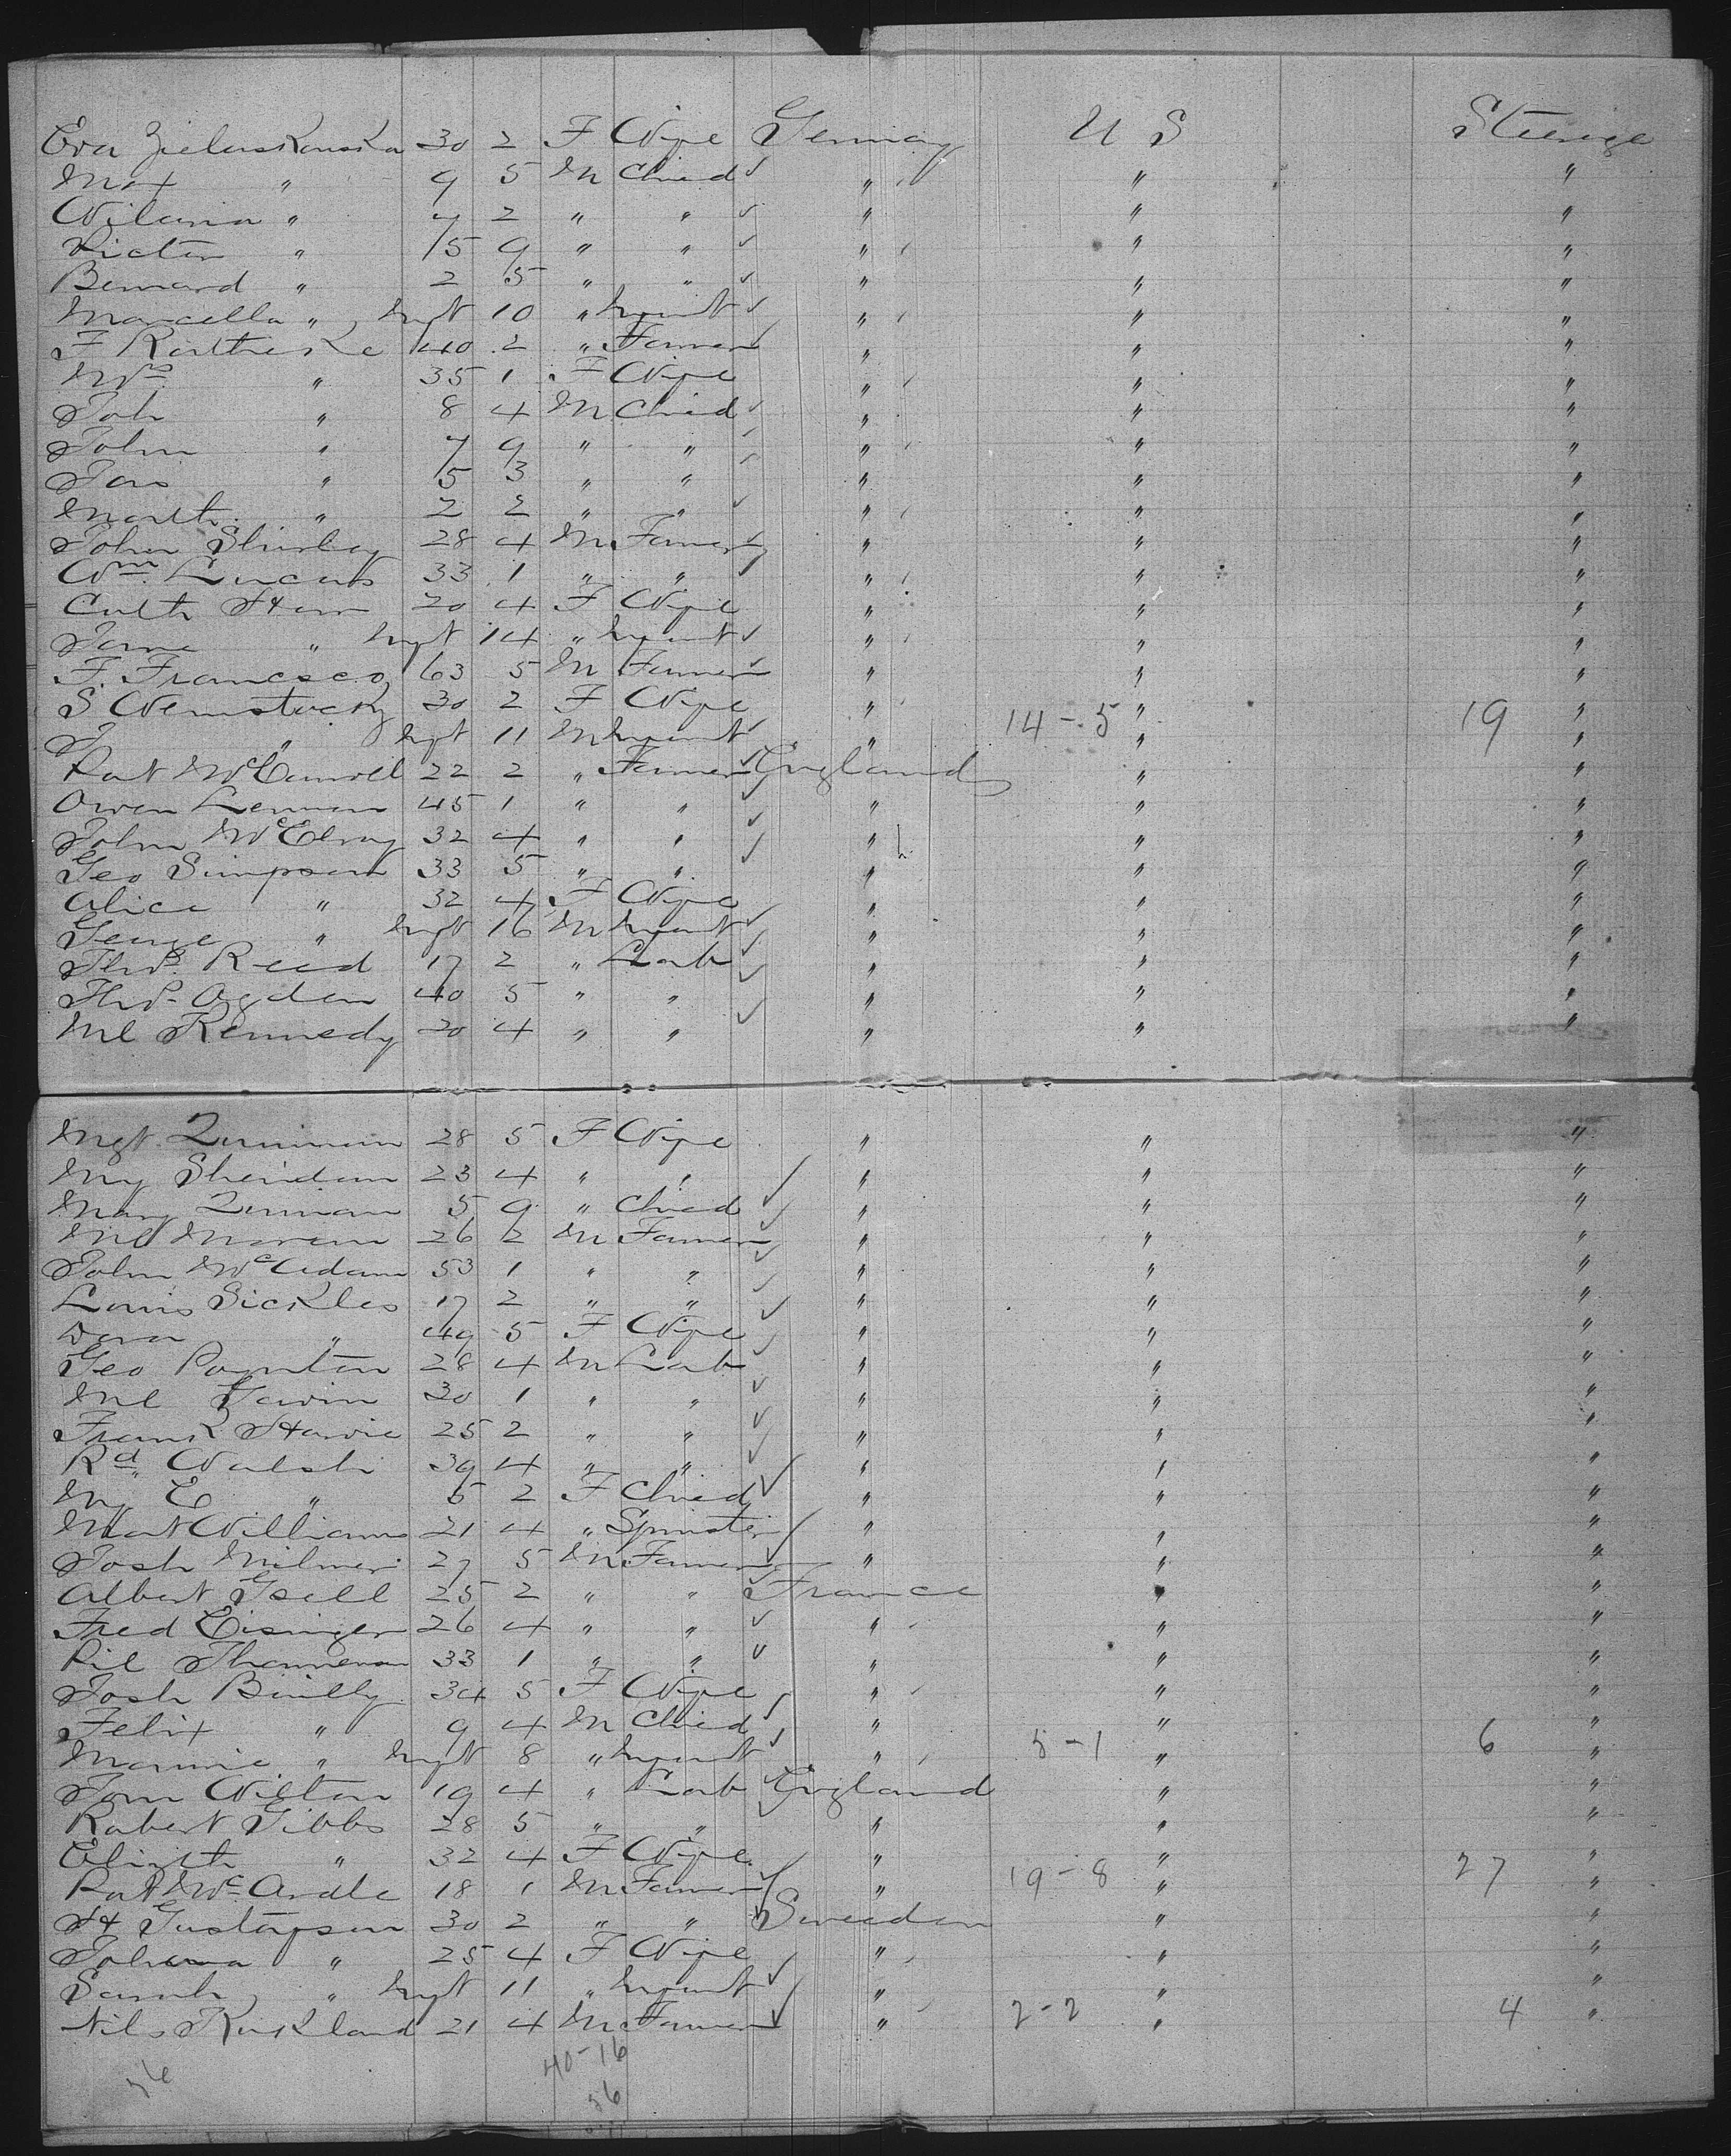 Eva Zieluskouska 30 2 F Wife Germany U S Steerage
Max " 9 5 M Child " " "
Wilania " 7 2 " " " " "
Victor " 5 9 " " " " "
Bernard " 2 5 " " " " "
Marcella " Inft 10 " Infant " " "
F 40 2 " Farmer " " "
Mrs " 35 1 F Wife " " "
Joh " 8 4 M Child " " "
John " 7 9 " " " " "
Jas " 5 3 " " " " "
Marth " 2 2 " " " " "
John Shirley 28 4 M Farmer " " "
Wm Lucas 33 1 " " " " "
Cath 20 4 F Wife " " "
Jane " Inft 14 " Infant " " "
F. Francisco 63 5 M Farmer " " "
S Wernstucky 30 2 F Wife " 14-5 " 19 "
J " Inft 11 M Infant " " "
Pat McCarroll 22 2 " Farmer England " "
Owen Lennon 45 1 " " " " "
John McElroy 32 4 " " " " "
Geo Simpson 33 5 " " " " "
Alice " 32 4 F Wife " " "
George " Inft 16 M Infant " " "
Thos. Reed 17 2 " Lab " " "
Thos. Ogden 40 5 " " " " "
Ml Kennedy 20 4 " " " " "
Mgt Quinnan 28 5 F Wife " " "
My Sheridan 23 4 " " " " "
Mary Quinan 5 9 " Child " " "
Ml Moran 26 2 M Farmer " " "
John McAdam 53 1 " " " " "
Louis Sickles 17 2 " " " " "
Dora " 49 5 F Wife " " "
Geo Poynton 28 4 M Lab " " "
Ml Gavin 30 1 " " " " "
Frank Harvie 25 2 " " " " "
Rd Walsh 39 4 " " " " "
My E " 5 2 F Child " " "
Mart Williams 21 4 " Spinster " " "
Josh Milner 27 5 M Farmer " " "
Albert Gsell 25 2 " " France " "
Fred Eisinger 26 4 " " " " "
Pil 33 1 " " " " "
Josh Bailly 34 5 F Wife " " "
Felix " 9 4 M Child " " "
Mannie " Inft 8 " Infant " 5-1 " 6 "
Tom Wilton 19 4 " Lab England " "
Robert Gibbs 28 5 " " " " "
Elizth " 32 4 F Wife " " "
Pat McArdle 18 1 M Farmer " 19-8 " 27 "
H Gustafson 30 2 " " Sweeden " "
Johanna " 25 4 F Wife " " "
Sarah " Inft 11 " Infant " " "
Nils Kirkland 21 4 M Farmer " 2-2 " 4 "
40-16
56